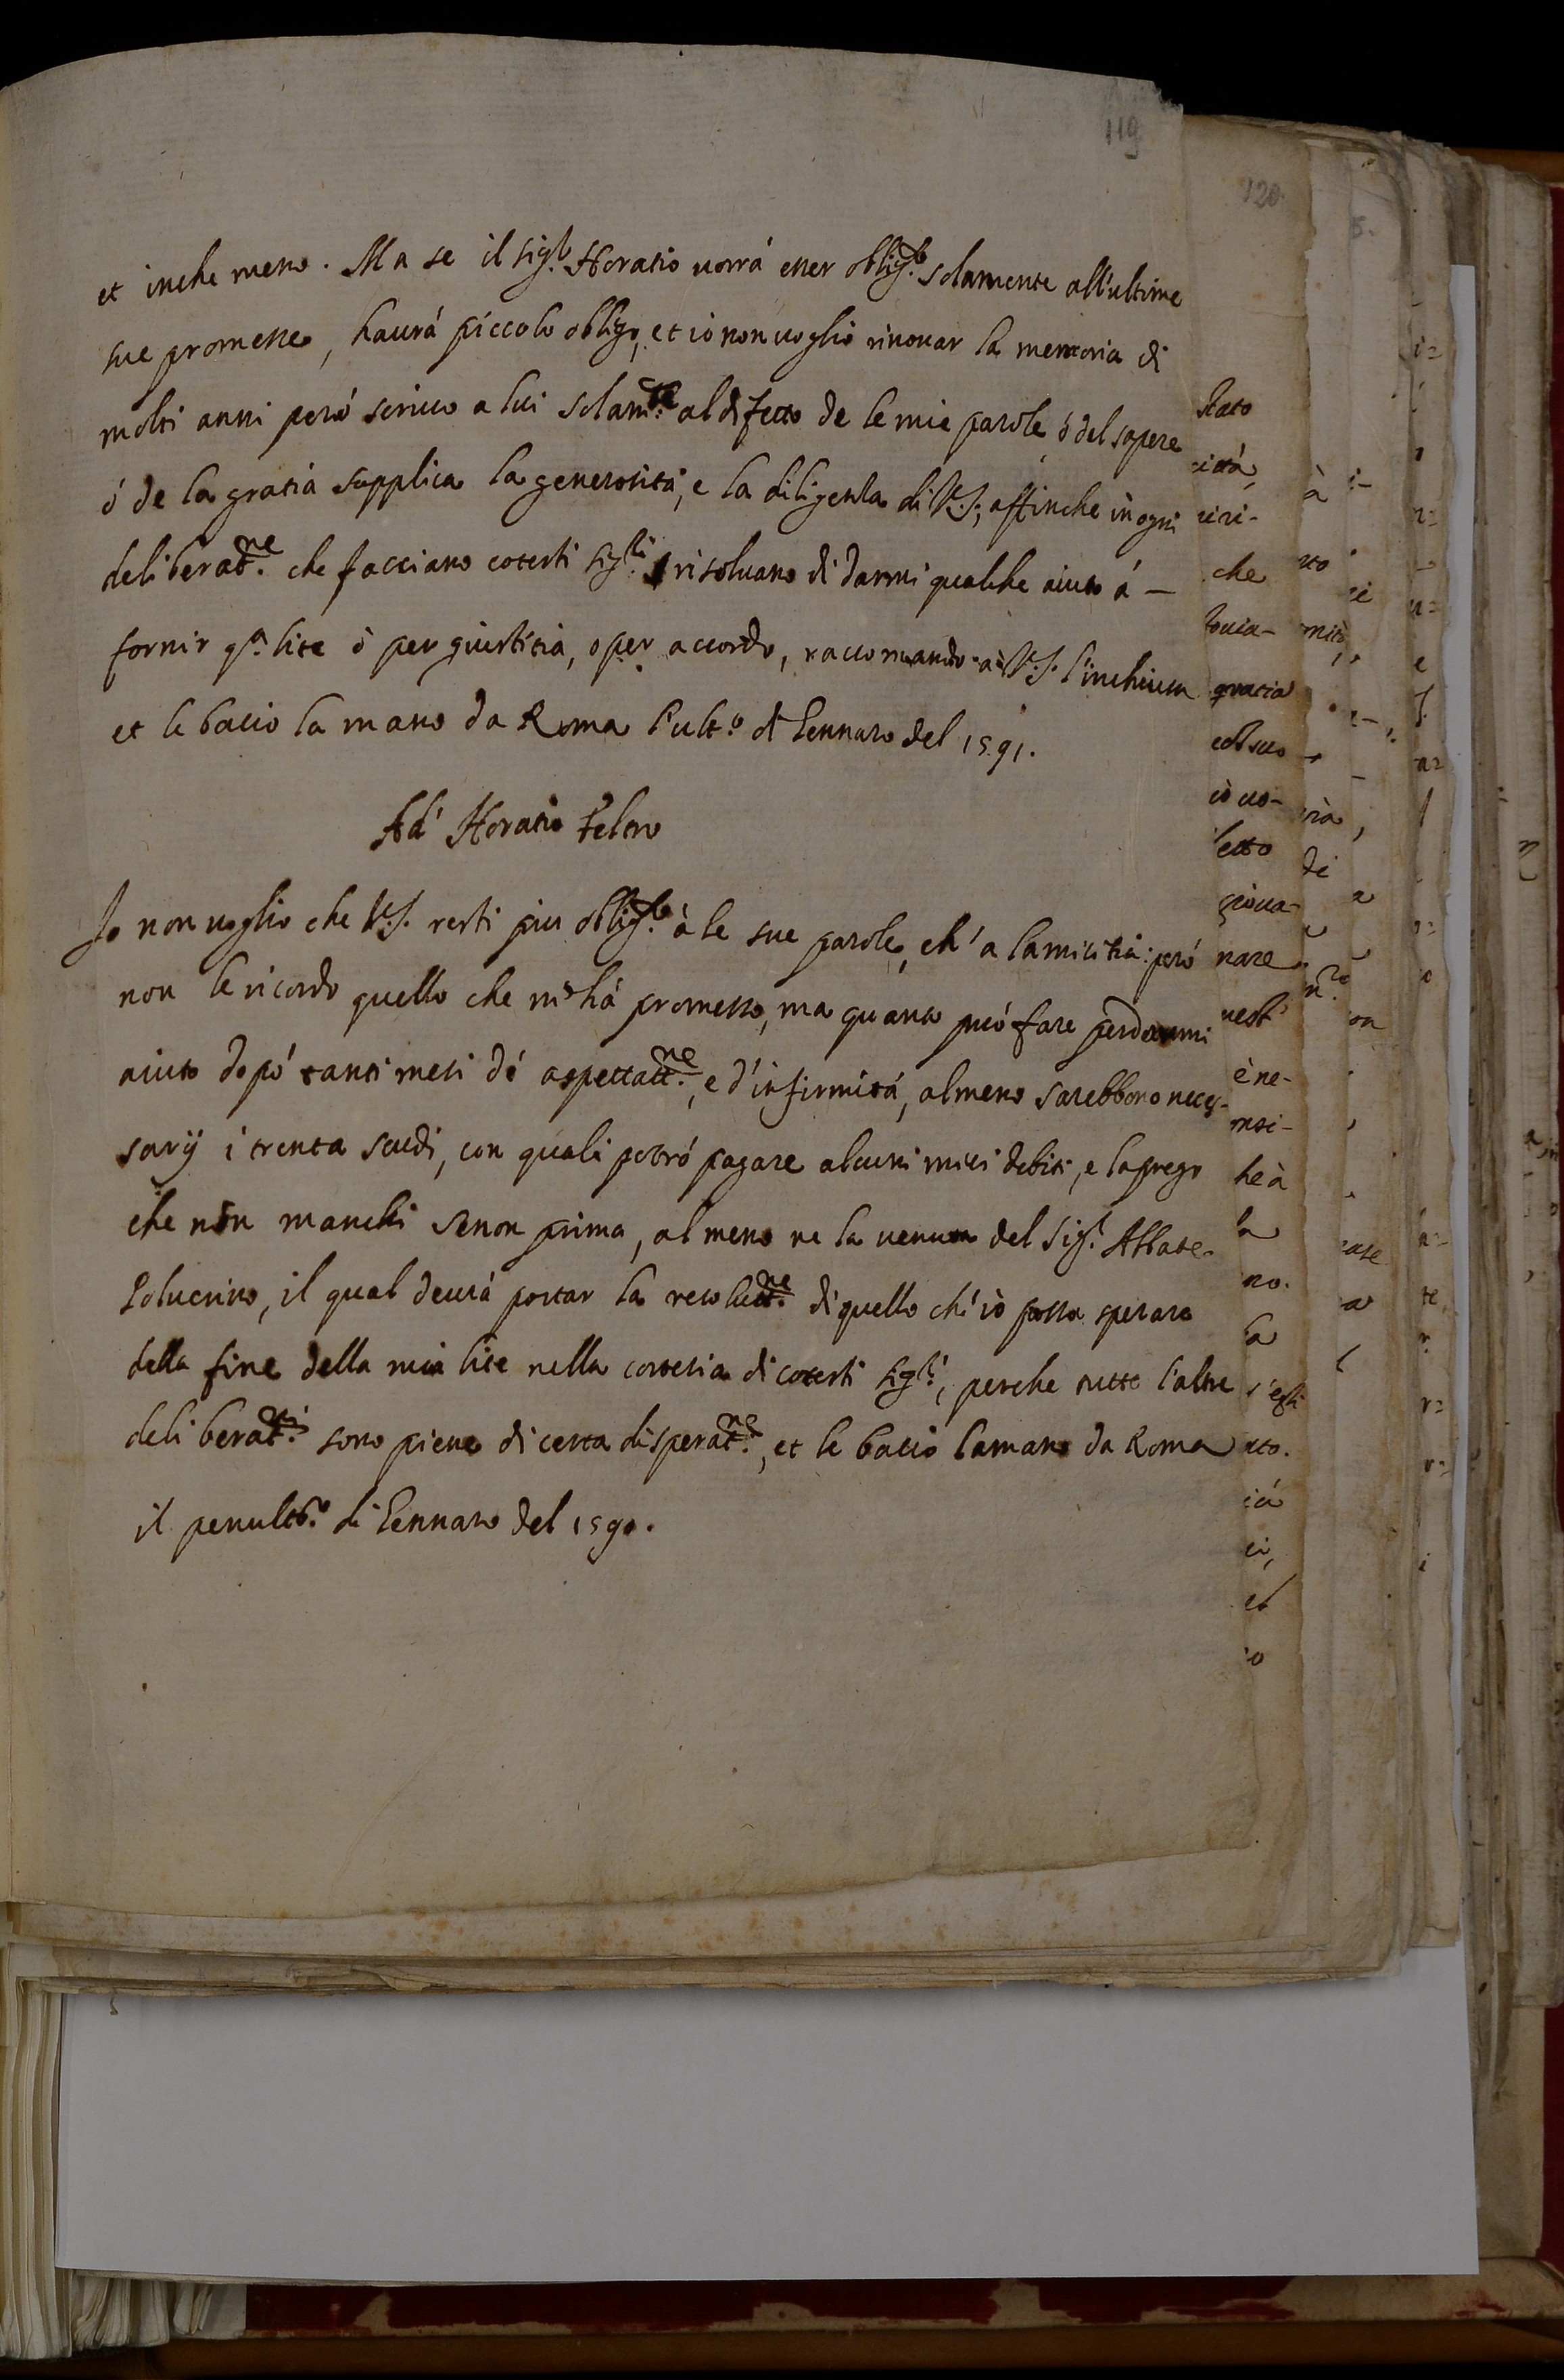 119
et inche meno. Ma se il sig.r Horatio uorrá esser oblig.to solamente all'ultime
sue promesse, haurá piccolo obligo, et io non uoglio rinouar la memoria di
molti anni peró scriuo a lui solam.te al difetto de le mie parole, ó del sapere
ó de la gratia supplica la generositá, e la diligenza di V.S., affinche in ogni
deliberat.ne che facciano cotesti sig.ri risoluano di darmi qualche aiuto á —
fornir q.a lite ò per giustitia, o per accordo, raccomando à V.S. l'inchiusa
et le bacio la mano da Roma l'ult.o di Gennaro del 1591.
Ad' Horatio Feltro
Io non uoglio che V.S. resti piu oblig.to à le sue parole, ch' a lamicitia: peró
non le ricordo quello che m'há promesso, ma quanto puó fare per darmi
aiuto dopó tanti mesi dé aspettatt.ne, e d'infirmitá, almeno sarebbono neces-
sarij i trenta scudi, con quali potró pagare alcuni miei debiti, e la prego
che non manchi se non prima, almeno ne la uenuta del Sig.r Abbate
Poluerino, il qual deurá portar la resolutt.ne di quello ch' iò possa sperare
della fine della mia lite nella cortesia di cotesti sig.ri, perche tutte l'altre
deliberat.ni sono piene di certa disperat.ne, et le bacio la mano da Roma
il penult.o di Gennaro del 1590.
120.
stato
cittá,
che
gratia
nare
è ne-
he à
la
no.
et